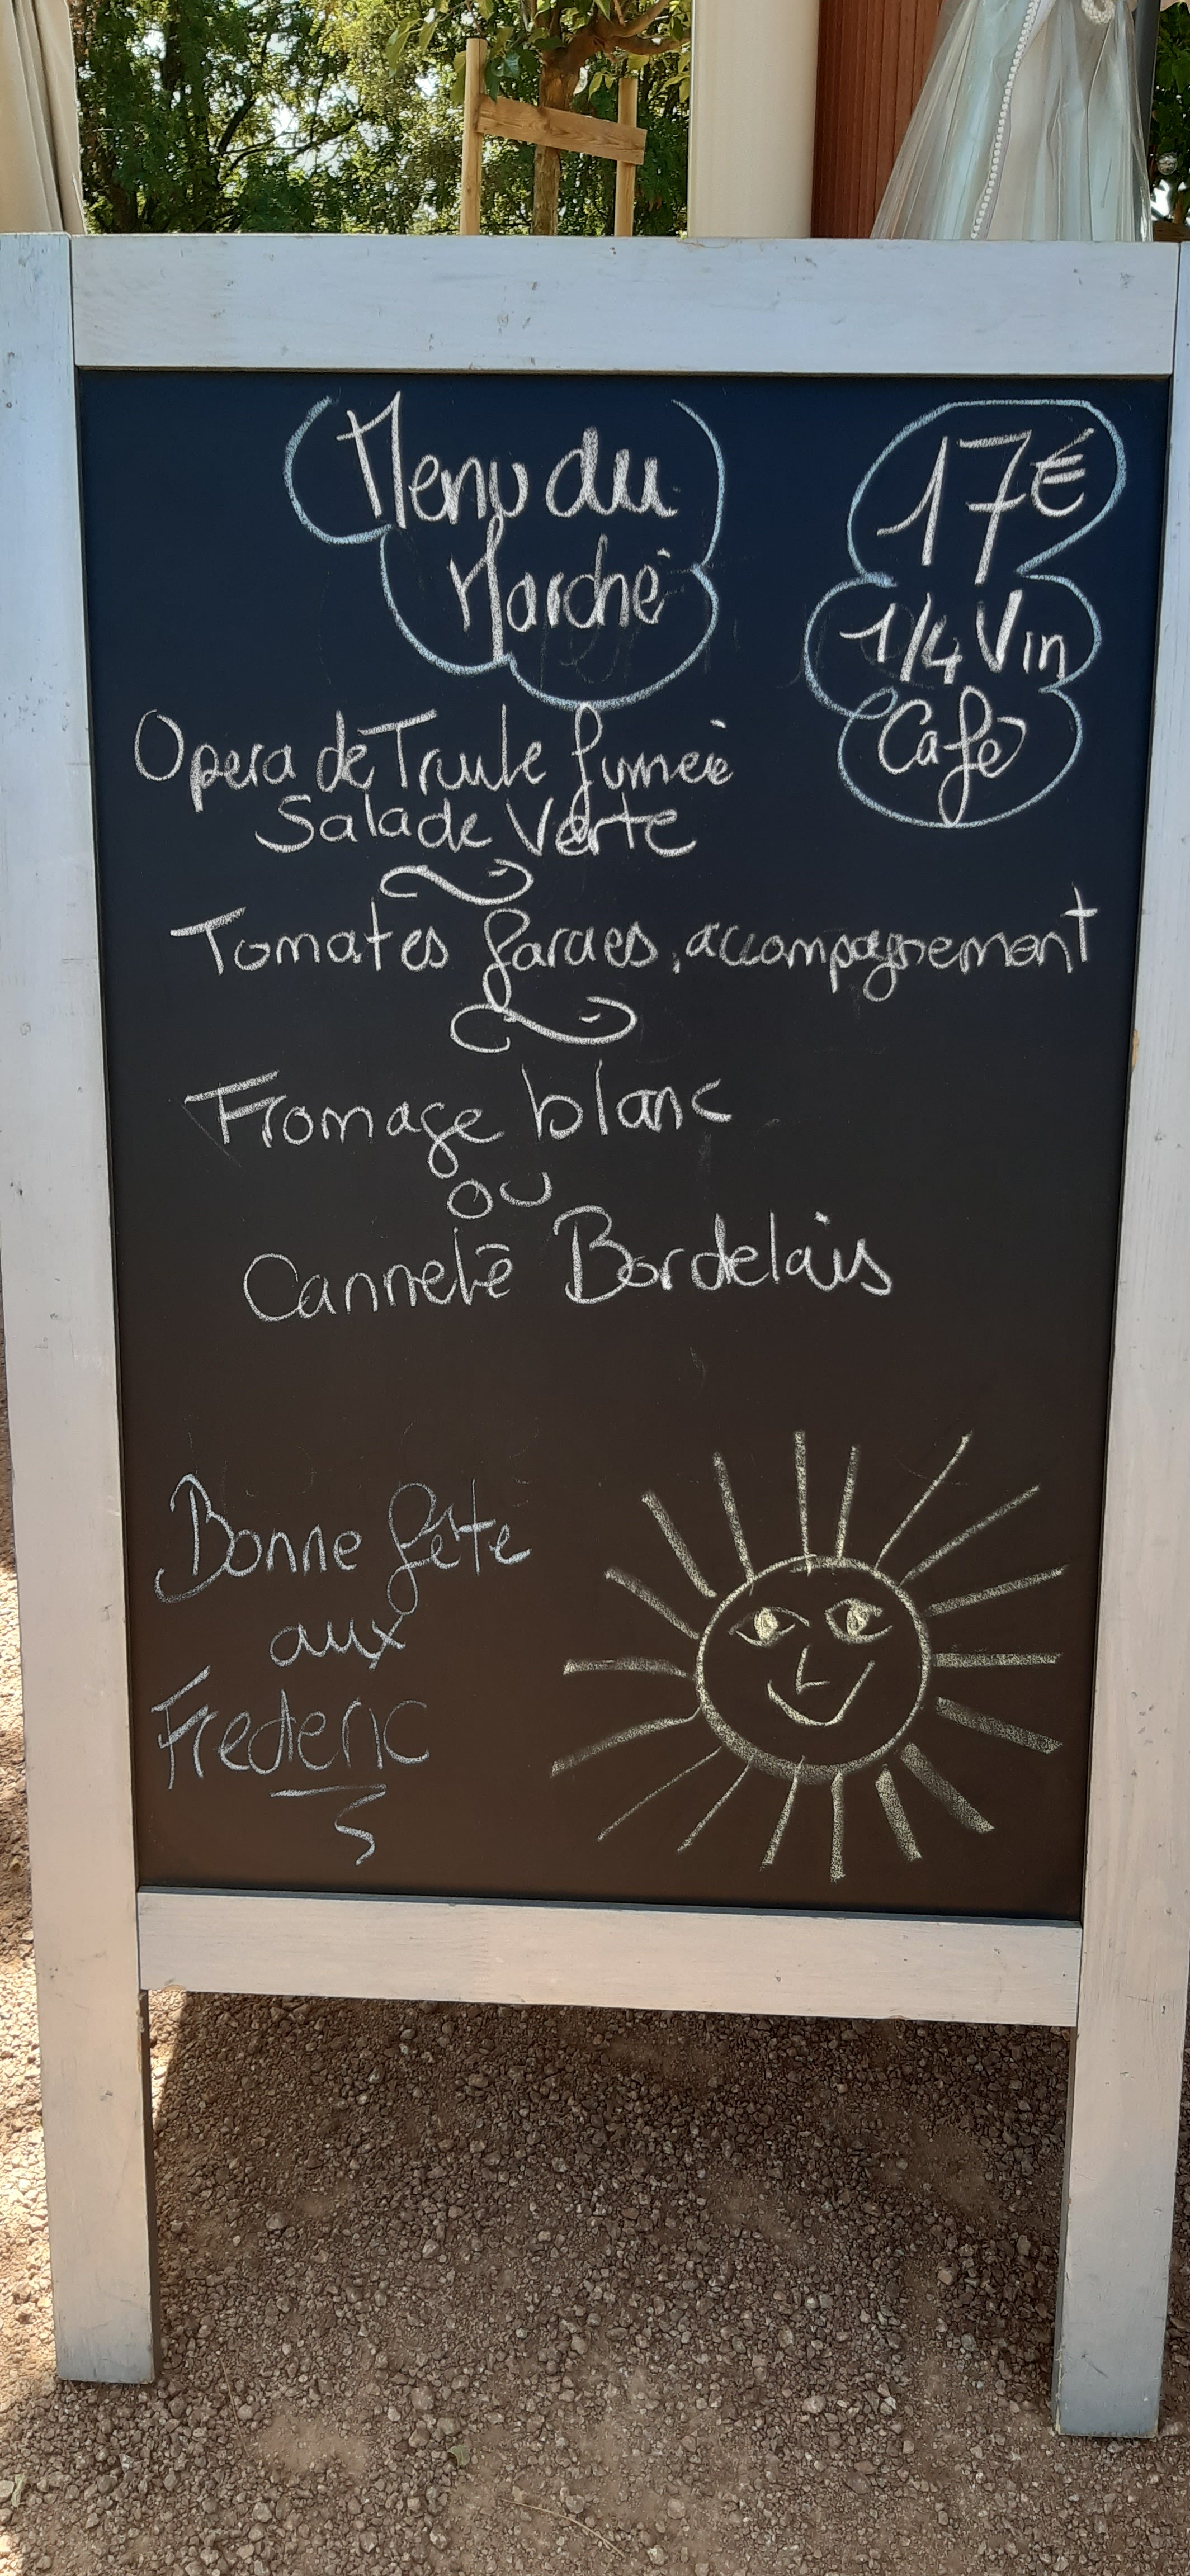 Menu du
Marché
17€
1/4 Vin
Café
Opera de Truite fumée
Salade Verte
Tomates farcies, accompagnement
Fromage blanc
ou
Cannelé Bordelais
Bonne fête
aux
Frederic